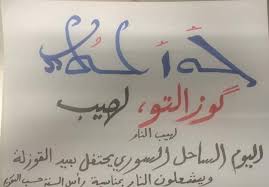 گوزالتو، لهيب
لهيب النار
اليوم الساحل السوري يحتفل بعيد القوزلة
ويشعلون النار بمناسبة رأس السنة حسب التقويم